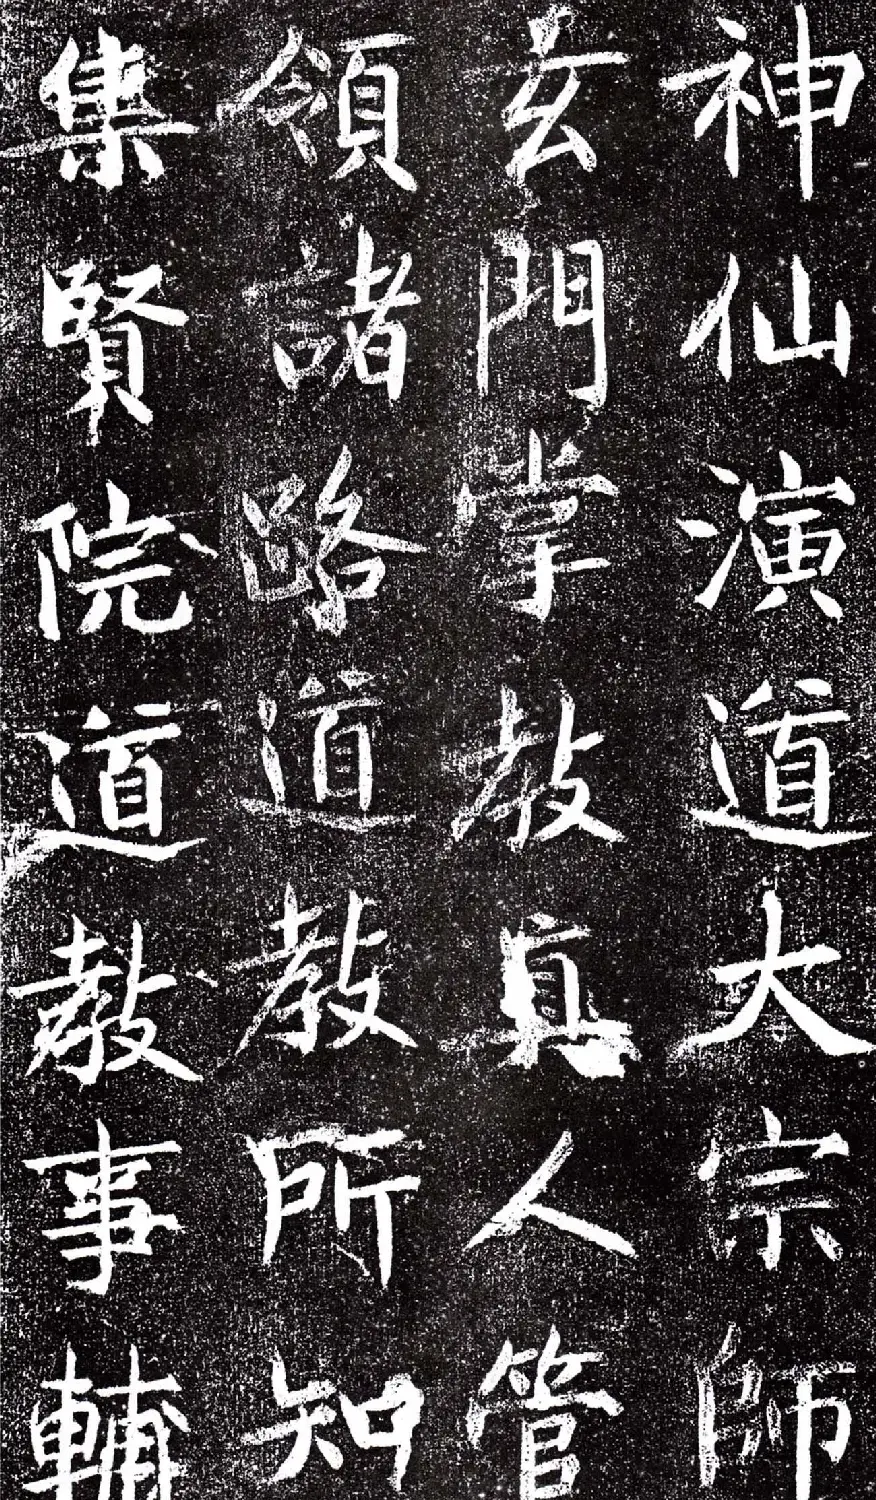 神仙演道大宗師
玄門掌教真人管
領諸路道教所知
集賢院道教事輔